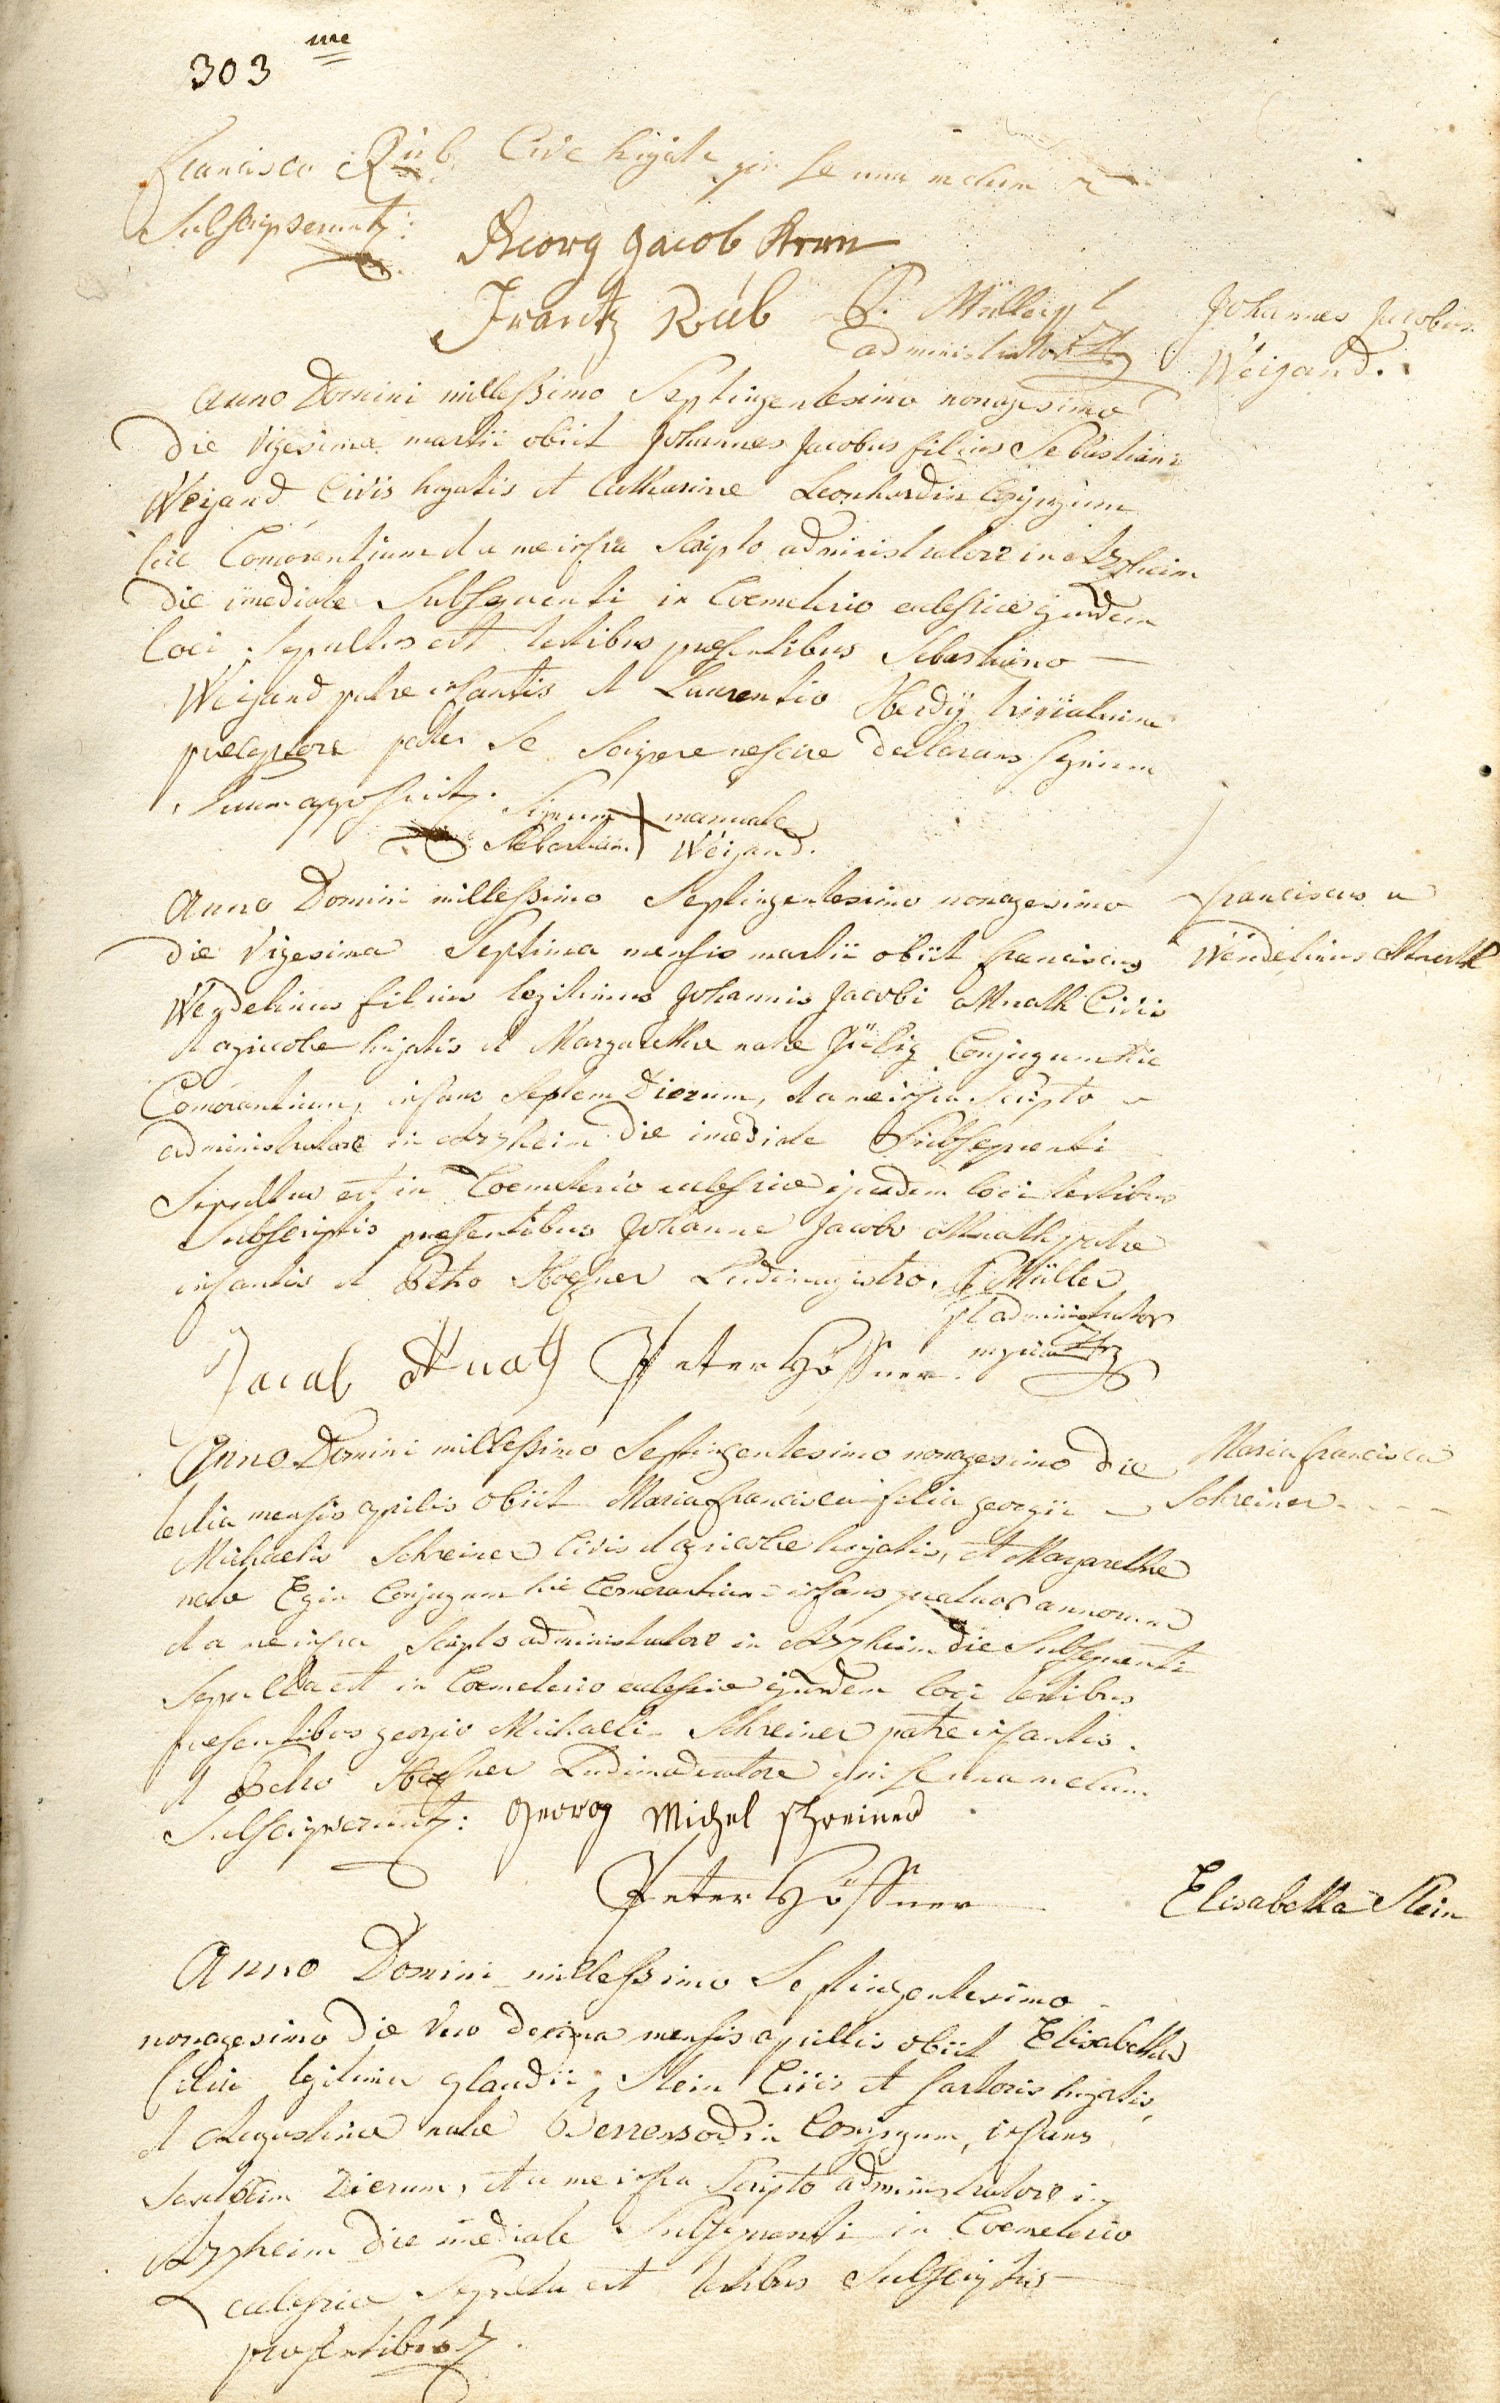 303 me
Francisco Rüb Cive hujate qui se una mecum
Subscripserunt:
Georg Jacob Kern
Frantz Rüb P. Müller pl
administrator
Johannes Jacobus
Weigand.
Anno Domini milleßimo Septingentesimo nonagesimo
die vigesima martii obiit Johannes Jacobus filius Sebastiani
Weigand Civis hujatis et Catharinæ Leonhardin Conjugum
hic Comorantium et a me infra Scripto administratore in Arzheim
die imediate Subsequenti in Coemeterio eclesiæ ejusdem
loci Sepultus est testibus præsentibus Sebastiano
Weigand patre infantis et Laurentio Herdÿ trivialium
præceptore pater se Scripere nescire declarans signum
Suum apposuit.
Signum manuale
Sebastiani Weigand.
Franciscus
Wendelinus Knath
Anno Domini milleßimo Septingentesimo nonagesimo
die vigesima Septima mensis martii obiit franciscus
Wendelinus filius legitimus Johannis Jacobi Knath Civis
et agricolæ hujatis et Margarethæ natæ Jülig Conjugum hic
Comorantium, infans Septem dierum, et a me infra Scripto
administratore in Arzheim die imediate Subsequenti
Sepultus est in Coemeterio eclesiæ ejusdem loci testibus
Subscriptis præsentibus Johanne Jacobo Knath patre
infantis et Petro Hoefner Ludimagistro. P Müller
pl administrator
Jacob Knath Peter Höffner. mpria
Maria francisca
Schreiner
Anno Domini milleßimo Septingentesimo nonagesimo die
tertia mensis aprilis obiit Maria francisca filia georgii
Michaelis Schreiner Civis et agricolæ hujatis, et Margarethæ
natæ Egin Conjugum hic Comorantium infans quatuor annorum
et a me infra Scripto administratore in Arzheim die Subsequenti
Sepulta est in Coemeterio eclesiæ ejusdem loci testibus
præsentibus georgio Michaeli Schreiner patre infantis.
et Petro Hoefner Ludimoderatore qui se una mecum
Subscripserunt: Georg Michel Schreiner
Peter Höffner
Elisabetha Stein
Anno Domini milleßimo Septingentesimo
nonagesimo die vero decima mensis aprillis obiit Elisabetha
filia legitima glaudii Stein Civis et sartoris hujatis,
et Augustinæ natæ Conjugum, infans
dierum, et a me infra Scripto administratore in
Arzheim die imediate Subsequenti in Coemeterio
eclesiæ Sepulta est testibus Subscriptis
præsentibus